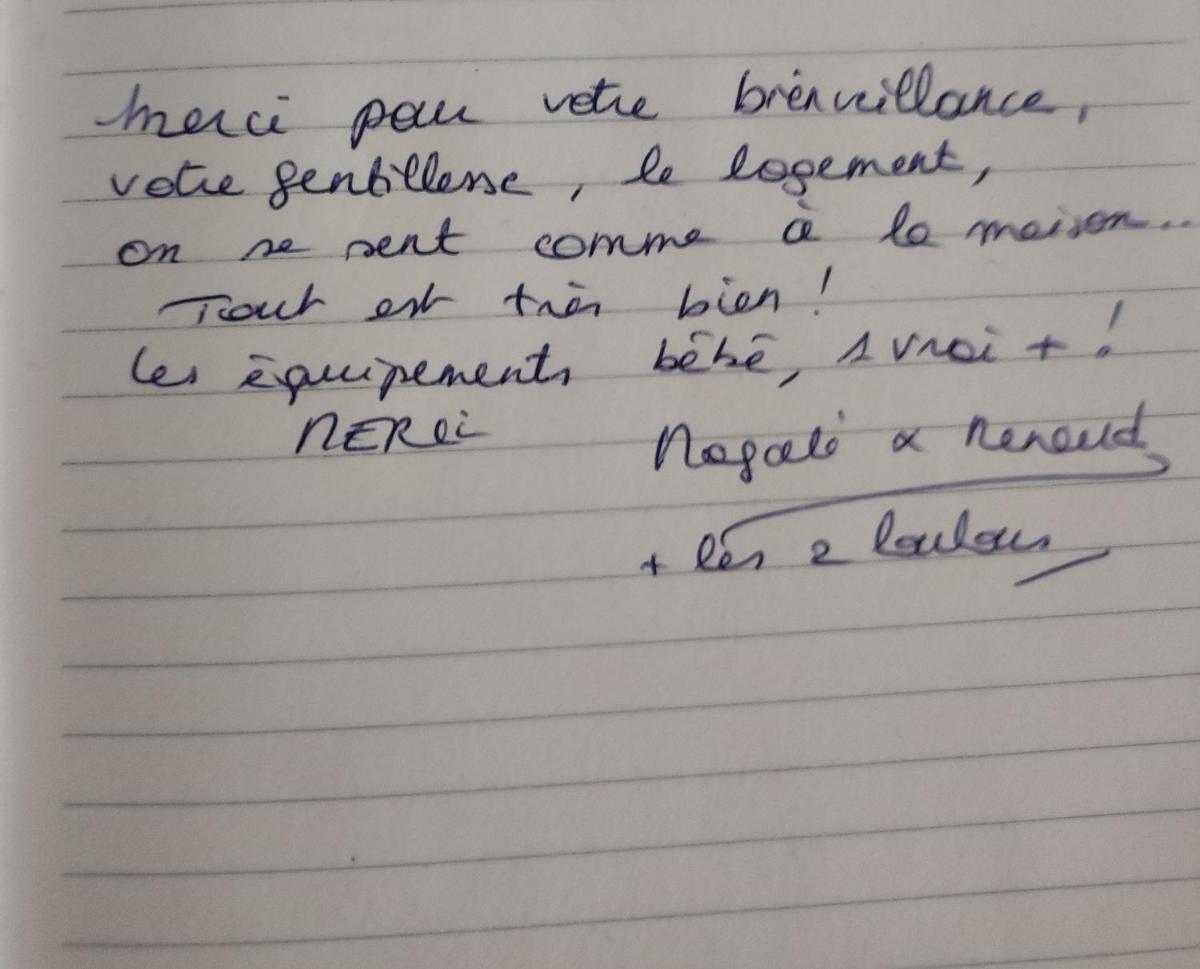 Merci pour votre bienveillance,
votre gentillesse, le logement,
on se sent comme à la maison..
Tout est très bien !
Les équipements bébé, 1 vrai + !
MERCi
Magali & Renaud
+ les 2 loulous